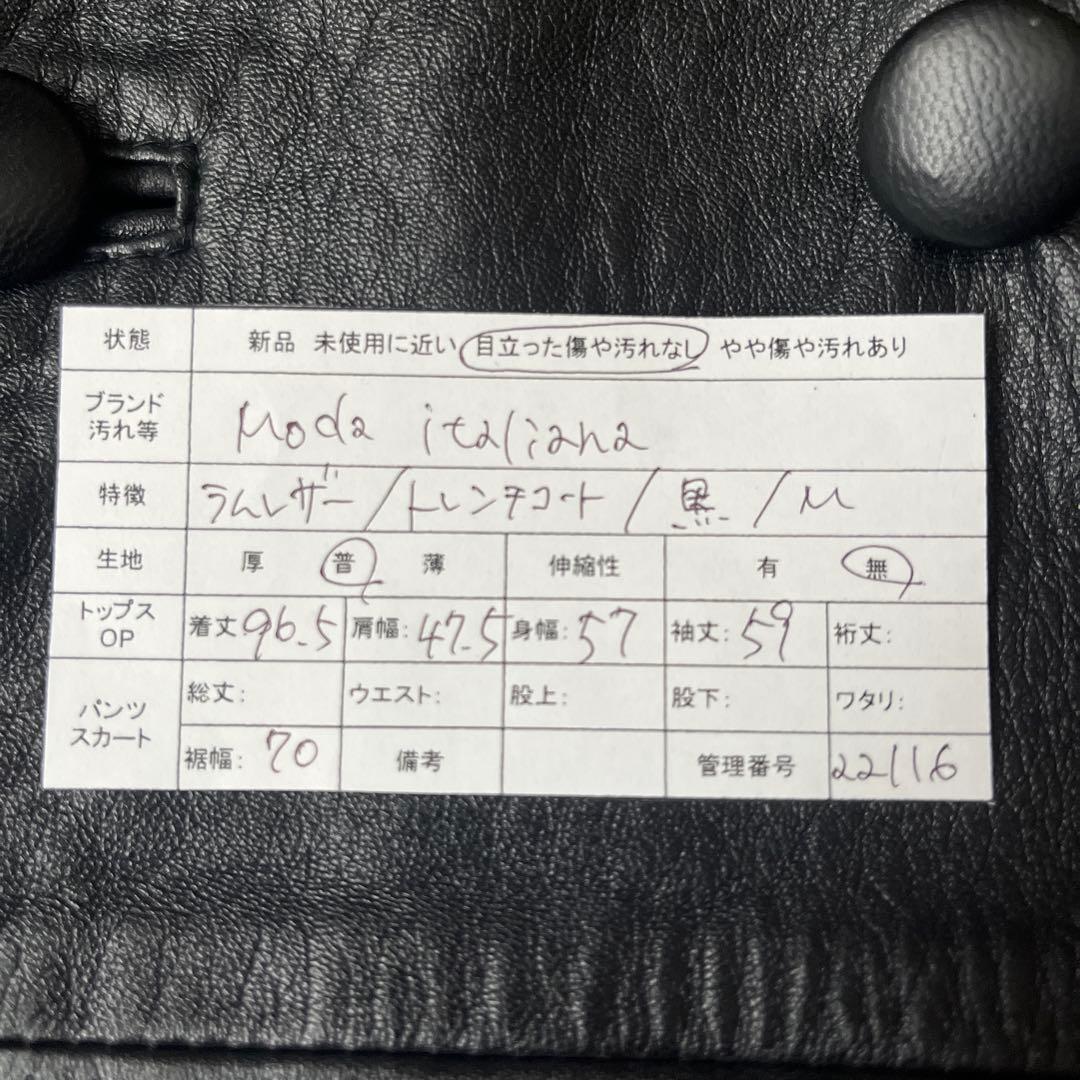 状態 新品 未使用に近い 目立った傷や汚れなし やや傷や汚れあり
ブランド
汚れ等 Moda italiana
特徴 ラムレザー/トレンチコート/黒/M
生地 厚 普 薄 伸縮性 有 無
トップス
OP 着丈96.5 肩幅:47.5 身幅:57 袖丈:59 裄丈:
パンツ
スカート 総丈: ウエスト: 股上: 股下: ワタリ:
裾幅:70 備考 管理番号 22116